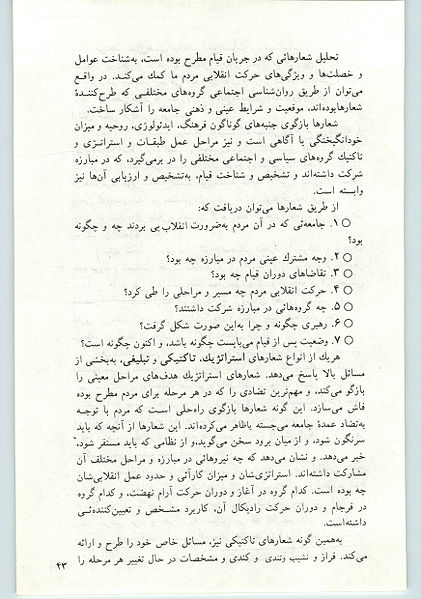 تحلیل شعارهائی که در جریان قیام مطرح بوده است، به‌شناخت عوامل
و خصلت‌ها و ویژگی‌های حرکت انقلابی مردم ما کمك می‌کند. در واقع
می‌توان از طریق روان‌شناسی اجتماعی گروه‌های مختلفی که طرح‌کنندهٔ
شعارهابوده‌اند، موقعیت و شرایط عینی و ذهنی جامعه را آشکار ساخت.
شعارها بازگوی جنبه‌های گوناگون فرهنگ، ایدئولوژی، روحیه و میزان
خودانگیختگی یا آگاهی است و نیز مراحل عمل طبقات و استراتژی و
تاکتیك گروه‌های سیاسی و اجتماعی مختلفی را در برمی‌گیرد، که در مبارزه
شرکت داشته‌اند و تشخیص و شناخت قیام، به‌تشخیص و ارزیابی آن‌ها نیز
وابسته است.
از طریق شعارها می‌توان دریافت که:
○ ۱. جامعه‌ئی که در آن مردم به‌ضرورت انقلاب پی بردند چه و چگونه
بود؟
○ ۲. وجه مشترك عینی مردم در مبارزه چه بود؟
○ ۳. تقاضاهای دوران قیام چه بود؟
○ ۴. حرکت انقلابی مردم چه مسیر و مراحلی را طی کرد؟
○ ۵. چه گروه‌هائی در مبارزه شرکت داشتند؟
○ ۶. رهبری چگونه و چرا به‌این صورت شکل گرفت؟
○ ۷. وضعیت پس از قیام می‌بایست چگونه باشد، و اکنون چگونه است؟
هریك از انواع شعارهای استراتژیك، تاکتیکی و تبلیغی، به‌بخشی از
مسائل بالا پاسخ می‌دهد. شعارهای استراتژیك هدف‌های مراحل معینی را
بازگو می‌کند، و مهم‌ترین تضادی را که در هر مرحله برای مردم مطرح بوده
فاش می‌سازد. این گونه شعارها بازگوی راه‌حلی است که مردم با توجه
به‌تضاد عمدهٔ جامعه می‌جسته یاظاهر می‌کرده‌اند. این شعارها از آنچه که باید
سرنگون شود، و از میان برود سخن می‌گوید،و از نظامی که باید مستقر شود،
خبر می‌دهد. و نشان می‌دهد که چه نیروهائی در مبارزه و مراحل مختلف آن
مشارکت داشته‌اند. استراتژی‌شان و میزان کارآئی و حدود عمل انقلابی‌شان
چه بوده است. کدام گروه در آغاز و دوران حرکت آرام نهضت، و کدام گروه
در فرجام و دوران حرکت رادیکال آن، کاربرد مشخص و تعیین‌کننده‌ئی
داشته‌است.
به‌همین گونه شعارهای تاکتیکی نیز، مسائل خاص خود را طرح و ارائه
می‌کند. فراز و نشیب وتندی و کندی و مشخصات در حال تغییر هر مرحله را
۴۳